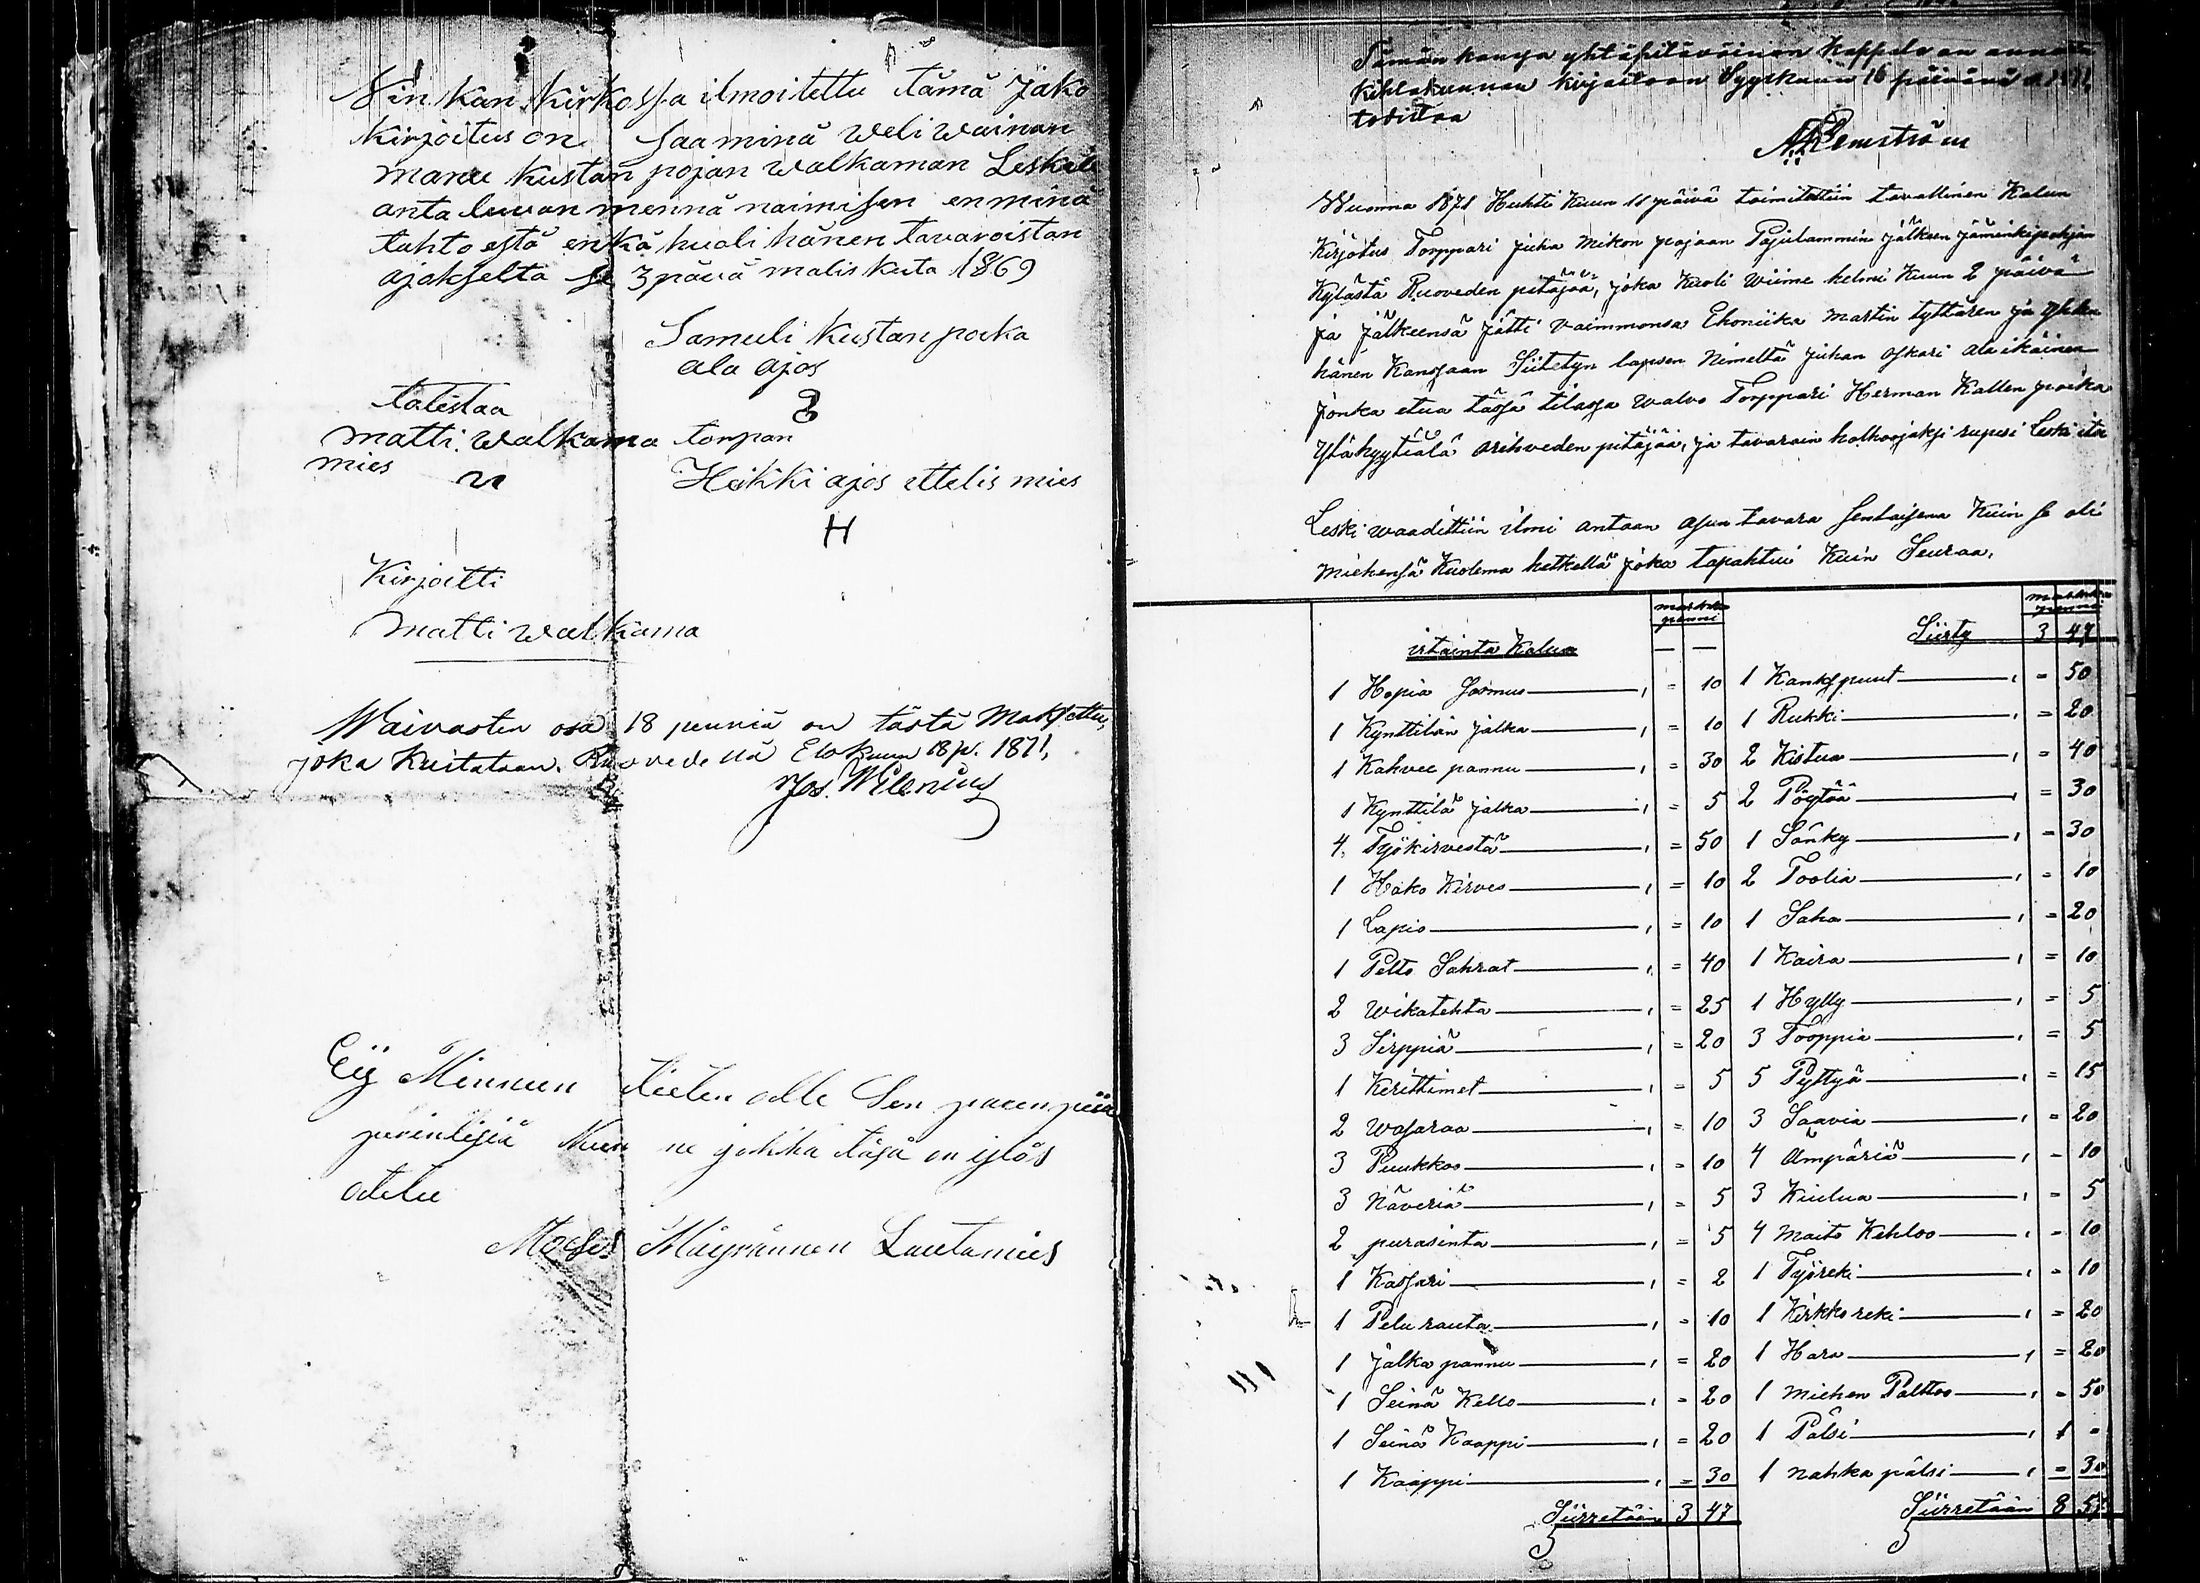 Niin kän kirkossa ilmoitettu tämä Jako
kirjoitus on Saa minä weli wainan
manu kustan pojan walkaman Leskele
anta luvan mennä naimisen en minä
tahto estä enkä huoli hänen tavaroistan
ajakselta se 3 pävä malis kuta 1869
Samuli kustan poika
ala ajos
totistaa
matti walkama torpan
mies
Heikki ajos ittelis mies
H
Kirjoitti
matti walkama
Waivasten osa 18 penniä on tästä Maksettu,
joka kuitataan. Ruovedellä Elokuun 18 p. 1871,
Jos. Wilenius
Eij Minnun tieten alle Sen parempiia
perintlisiä kuin ne jokka täsä on ylös
otetu
Moses Mäyrännen Lautamies
Tämän kansa yhtäpitäväinen kappale on annettu
Kihlakunnan kirjastoon Syyskuun 16 päivänä 1871,
todistaa
Wuonna 1871 Huhti Kuun 11 päivä toimitettiin tavallinen Kalun
Kirjotus Torppari juha mikon pojaan Pajulammin jälkeen jäminkipohjan
Kylästä Ruoveden pitäjää, joka kuoli wiime helmi Kuun 2 päivä
ja jälkeensä jätti vaimmonsa Ehoniika martin tyttären ja yhden
hänen Kanssaan Siitetyn lapsen Nimeltä juhan oskari ala ikäinen
jonka etua tässä tilassa walvo Torppari Herman Kallen poika
Yläkyytiälä orihveden pitäjää, ja tavarain halkoojaksi rupesi Leski ite
Leski waadittiin ilmi antaan asun tavara Sentaisena Kuin se oli
miehensä Kuolema hetkellä joka tapahtui Kuin Seuraa.
irtainta Kalua markka penni
1 Hopia Sormus 10
1 Kynttilän jalka 10
1 Kahvee pannu 30
1 Kynttilä jalka 5
4 Työkirvestä 50
1 Hako Kirves 10
1 Lapio 10
1 Pelto Sahrat 40
2 Wikatehta 25
3 Sirppiä 20
1 Kerittimet 5
2 wasaraa 10
3 Puukkoo 10
3 Näveriä 5
2 purasinta 5
1 Kassari 2
1 Pelu rauta 10
1 jalka pannu 20
1 Seinä Kello 20
1 Seinä Kaappi 20
1 Kaappi 30
Siirretään 3 47
markka penni
Siirty 3 47
1 Kankspuut 50
1 Rukki 20
2 Kistua 40
2 Pöytää 30
1 Sänky 30
2 Toolia 10
1 Saha 20
1 Kaira 10
1 Hylly 5
3 Tooppia 5
5 Pyttyä 15
3 Saavia 20
4 Ämpäriä 10
3 Kiulua 5
4 maito Kehloo 10
1 Työreki 10
1 Kirkko reki 20
1 Hara 20
1 miehen Palttoo 50
1 Pälsi 1 -
1 nahka pälsi 30
Siirretään 8 57